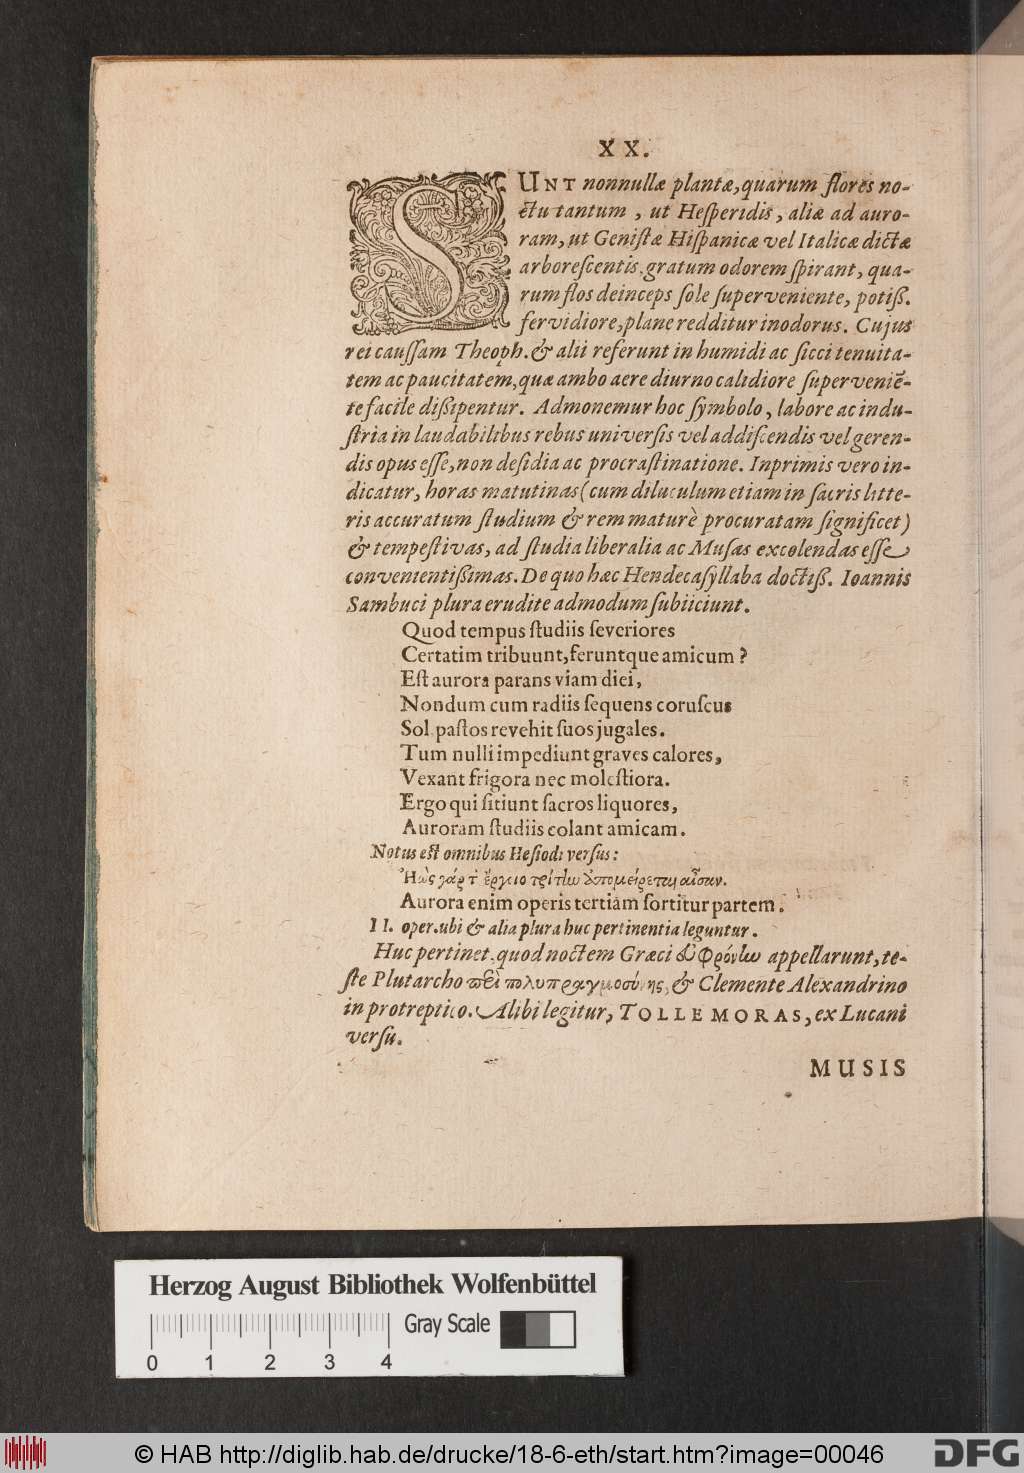 XX.
SUNT nonnullæ plantæ, quarum flores no-
ctu tantum, ut Hesperidis, aliæ ad auro-
ram, ut Genistæ Hispanicæ vel Italicæ dictæ
arborescentis, gratum odorem spirant, qua-
rum flos deinceps sole superveniente, potiß.
fervidiore, plane redditur inodorus. Cujus
rei caussam Theoph. & alii referunt in humidi ac sicci tenuita-
tem ac paucitatem, quæ ambo aere diurno calidiore superveniē-
te facile dißipentur. Admonemur hoc symbolo, labore ac indu-
stria in laudabilibus rebus universis vel addiscendis vel geren-
dis opus esse, non desidia ac procrastinatione. Inprimis vero in-
dicatur, horas matutinas (cum diluculum etiam in sacris litte-
ris accuratum studium & rem maturè procuratam significet)
& tempestivas, ad studia liberalia ac Musas excolendas esse
convenientißimas. De quo hæc Hendecasyllaba doctiß. Ioannis
Sambuci plura erudite admodum subiiciunt.
Quod tempus studiis severiores
Certatim tribuunt, feruntque amicum?
Est aurora parans viam diei,
Nondum cum radiis sequens coruscus
Sol pastos revehit suos jugales.
Tum nulli impediunt graves calores,
Vexant frigora nec molestiora.
Ergo qui sitiunt sacros liquores,
Auroram studiis colant amicam.
Notus est omnibus Hesiodi versus:
Ἠὼς γάρ τ' ἔργοιο τρίτην ἀπομείρεται αἶσαν.
Aurora enim operis tertiam sortitur partem.
II. oper. ubi & alia plura huc pertinentia leguntur.
Huc pertinet, quod noctem Græci εὐφρόνην appellarunt, te-
ste Plutarcho περὶ πολυπραγμοσύνης, & Clemente Alexandrino
in protreptico. Alibi legitur, TOLLE MORAS, ex Lucani
versu.
MUSIS
Herzog August Bibliothek Wolfenbüttel
0 1 2 3 4 Gray Scale
© HAB http://diglib.hab.de/drucke/18-6-eth/start.htm?image=00046 DFG